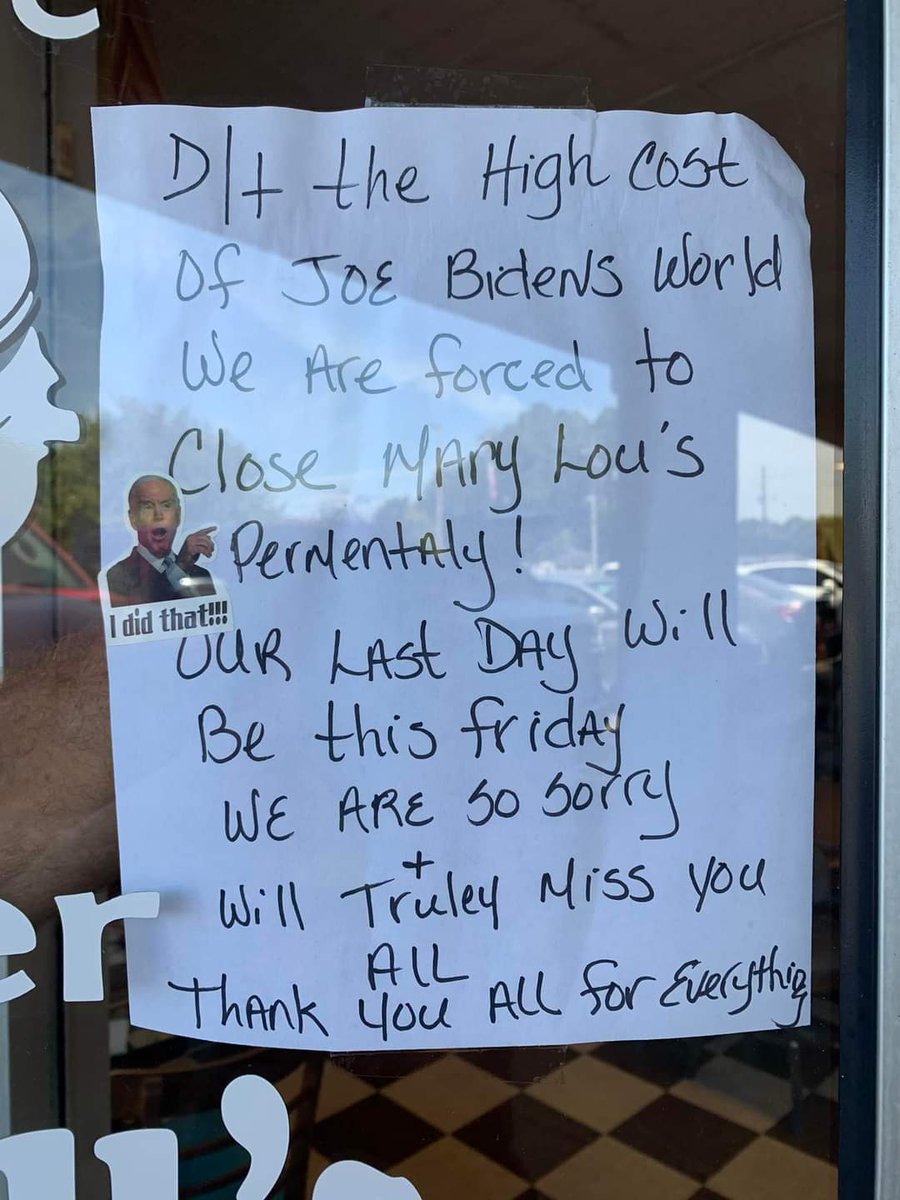 e
D/t the High Cost
Of JOE Bidens World
We Are forced to
Close MAry Lou's
PerMentAly!
I did that!!!
OUR LAst DAy Will
Be this fridAy
WE ARE so sorry
+
Will Truley Miss you
All
ThAnk you All for Everythig
er
u's